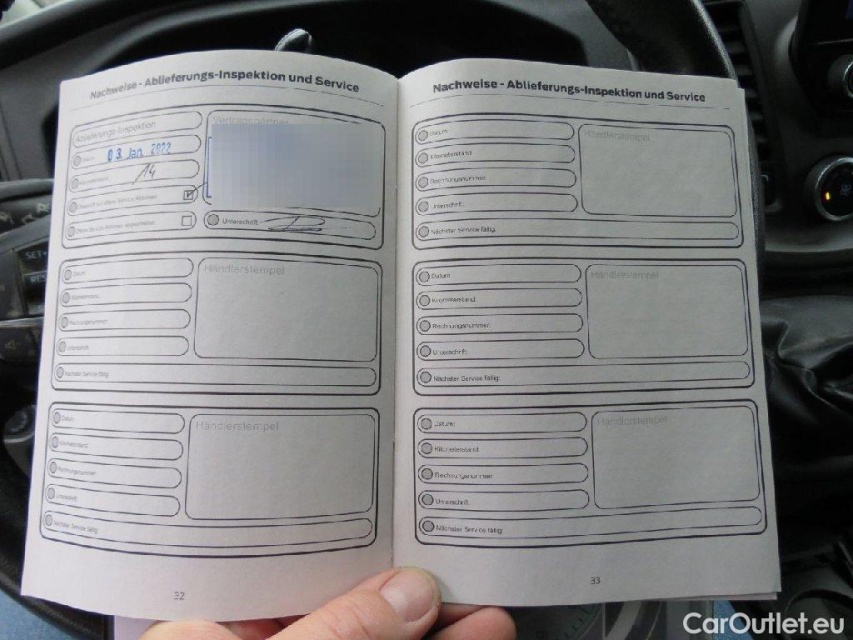 Nachweise - Ablieferungs-Inspektion und Service
Ablieferungs-Inspektion
Vertragspartner
Datum
03. Jan. 2022
14
Unterschrift
Datum
Händlerstempel
Kilometerstand
Rechnungsnummer
Unterschrift
Nächster Service fällig:
Datum
Händlerstempel
Kilometerstand
Rechnungsnummer
Unterschrift
Nächster Service fällig:
32
Nachweise - Ablieferungs-Inspektion und Service
Datum
Händlerstempel
Kilometerstand
Rechnungsnummer
Unterschrift
Nächster Service fällig:
Datum
Händlerstempel
Kilometerstand
Rechnungsnummer
Unterschrift
Nächster Service fällig:
Datum
Händlerstempel
Kilometerstand
Rechnungsnummer
Unterschrift
Nächster Service fällig:
33
SET+
CarOutlet.eu